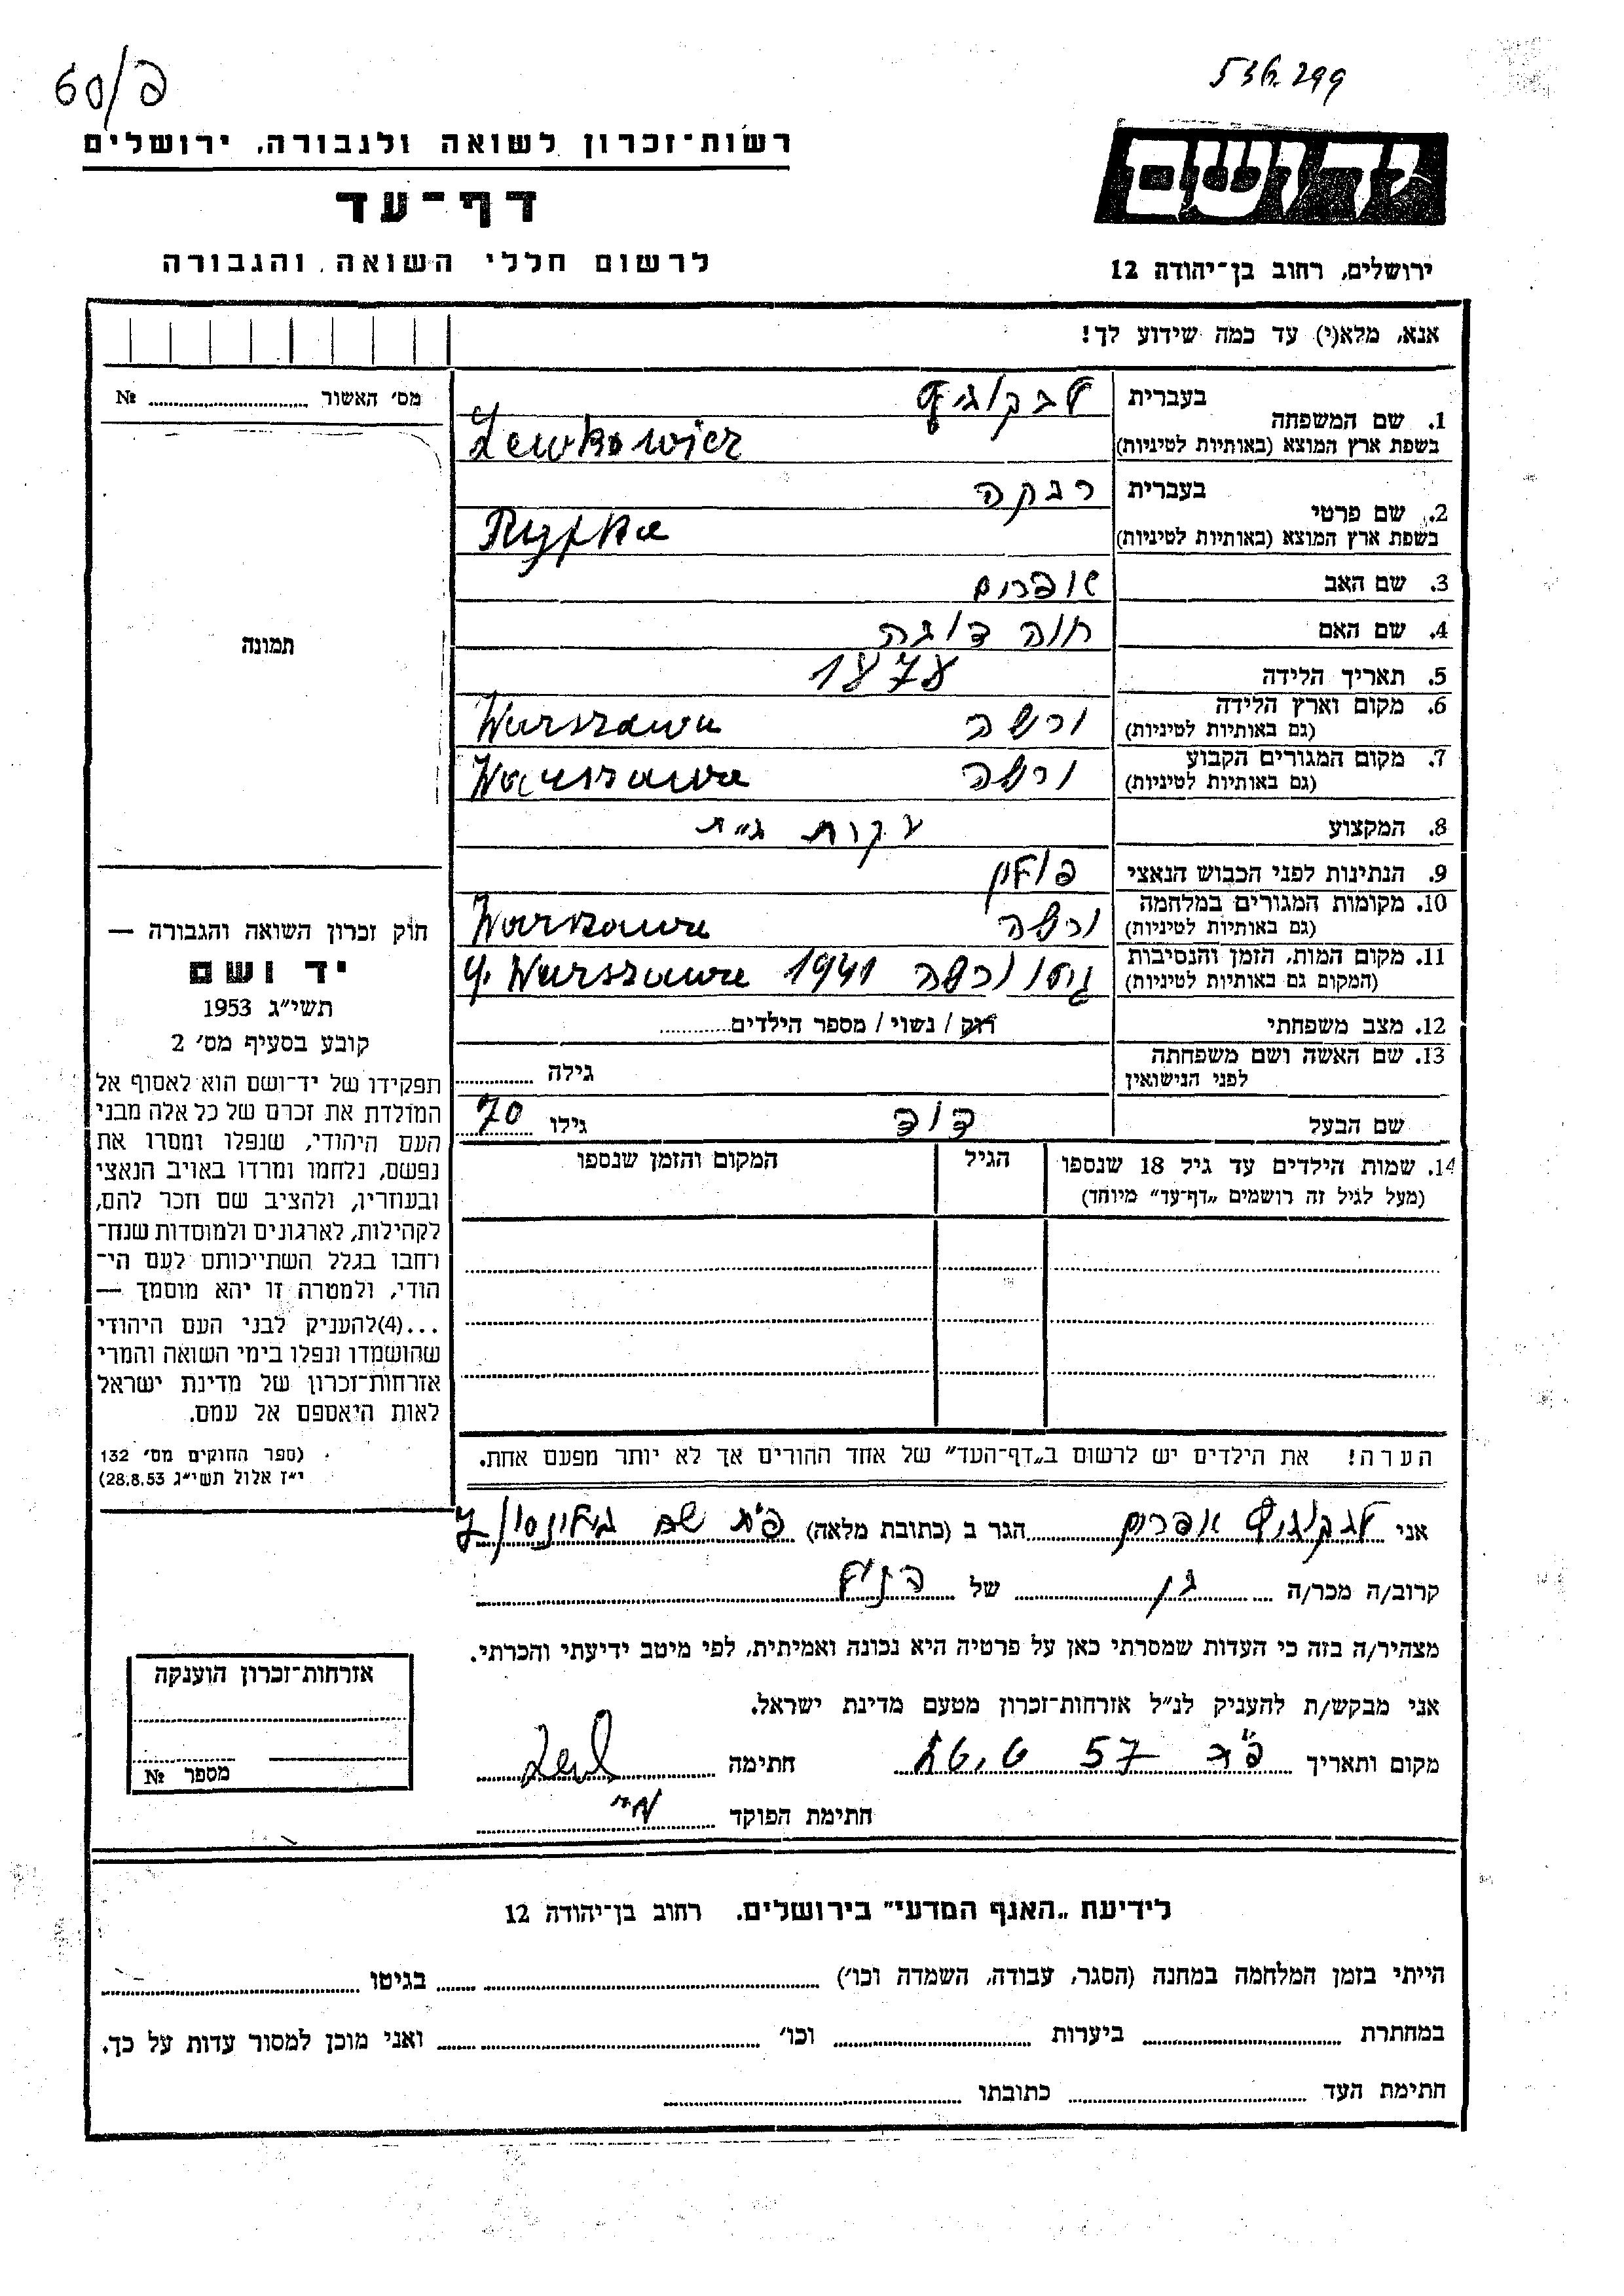 60/פ
536.299
רשות־זכרון לשואה ולגבורה, ירושלים
יד ושם
דף־עד
לרשום חללי השואה והגבורה
ירושלים, רחוב בן־יהודה 12
אנא, מלא(י) עד כמה שידוע לך!
מס׳ האשור № 
1. שם המשפחה בעברית לבקוביץ
בשפת ארץ המוצא (באותיות לטיניות) Lewkowicz
2. שם פרטי בעברית רבקה
בשפת ארץ המוצא (באותיות לטיניות) Ryfka
3. שם האב אפרים
4. שם האם חוה
5. תאריך הלידה 1878
6. מקום וארץ הלידה (גם באותיות לטיניות) ורשה Warszawa
7. מקום המגורים הקבוע (גם באותיות לטיניות) ורשה Warszawa
8. המקצוע עקרת בית
9. הנתינות לפני הכבוש הנאצי פולין
10. מקומות המגורים במלחמה (גם באותיות לטיניות) ורשה Warszawa
11. מקום המות, הזמן והנסיבות (המקום גם באותיות לטיניות) גטו ורשה 1941 g. Warszawa
12. מצב משפחתי רוק / נשוי / מספר הילדים
13. שם האשה ושם משפחתה לפני הנישואין גילה
שם הבעל דוד גילו 70
14. שמות הילדים עד גיל 18 שנספו הגיל המקום והזמן שנספו
(מעל לגיל זה רושמים „דף־עד״ מיוחד)
הערה! את הילדים יש לרשום ב„דף־העד״ של אחד ההורים אך לא יותר מפעם אחת.
תמונה
חוק זכרון השואה והגבורה —
יד ושם
תשי״ג 1953
קובע בסעיף מס׳ 2
תפקידו של יד־ושם הוא לאסוף אל
המולדת את זכרם של כל אלה מבני
העם היהודי, שנפלו ומסרו את
נפשם, נלחמו ומרדו באויב הנאצי
ובעוזריו, ולהציב שם וזכר להם,
לקהילות, לארגונים ולמוסדות שנח־
רחבו בגלל השתייכותם לעם הי־
הודי, ולמטרה זו יהא מוסמך —
...(4)להעניק לבני העם היהודי
שהושמדו ונפלו בימי השואה והמרי
אזרחות־זכרון של מדינת ישראל
לאות היאספם אל עמם.
(ספר החוקים מס׳ 132
י״ז אלול תשי״ג 28.8.53)
אני לבקוביץ אפרים הגר ב (כתובת מלאה) פ״ת שם
קרוב/ה מכר/ה בן של הנ״ל
מצהיר/ה בזה כי העדות שמסרתי כאן על פרטיה היא נכונה ואמיתית, לפי מיטב ידיעתי והכרתי.
אני מבקש/ת להעניק לנ״ל אזרחות־זכרון מטעם מדינת ישראל.
מקום ותאריך 57 חתימה
חתימת הפוקד
אזרחות־זכרון הוענקה
מספר №
לידיעת „האגף המדעי״ בירושלים. רחוב בן־יהודה 12
הייתי בזמן המלחמה במחנה (הסגר, עבודה, השמדה וכו׳) בגיטו
במחתרת ביערות וכו׳ ואני מוכן למסור עדות על כך.
חתימת העד כתובתו